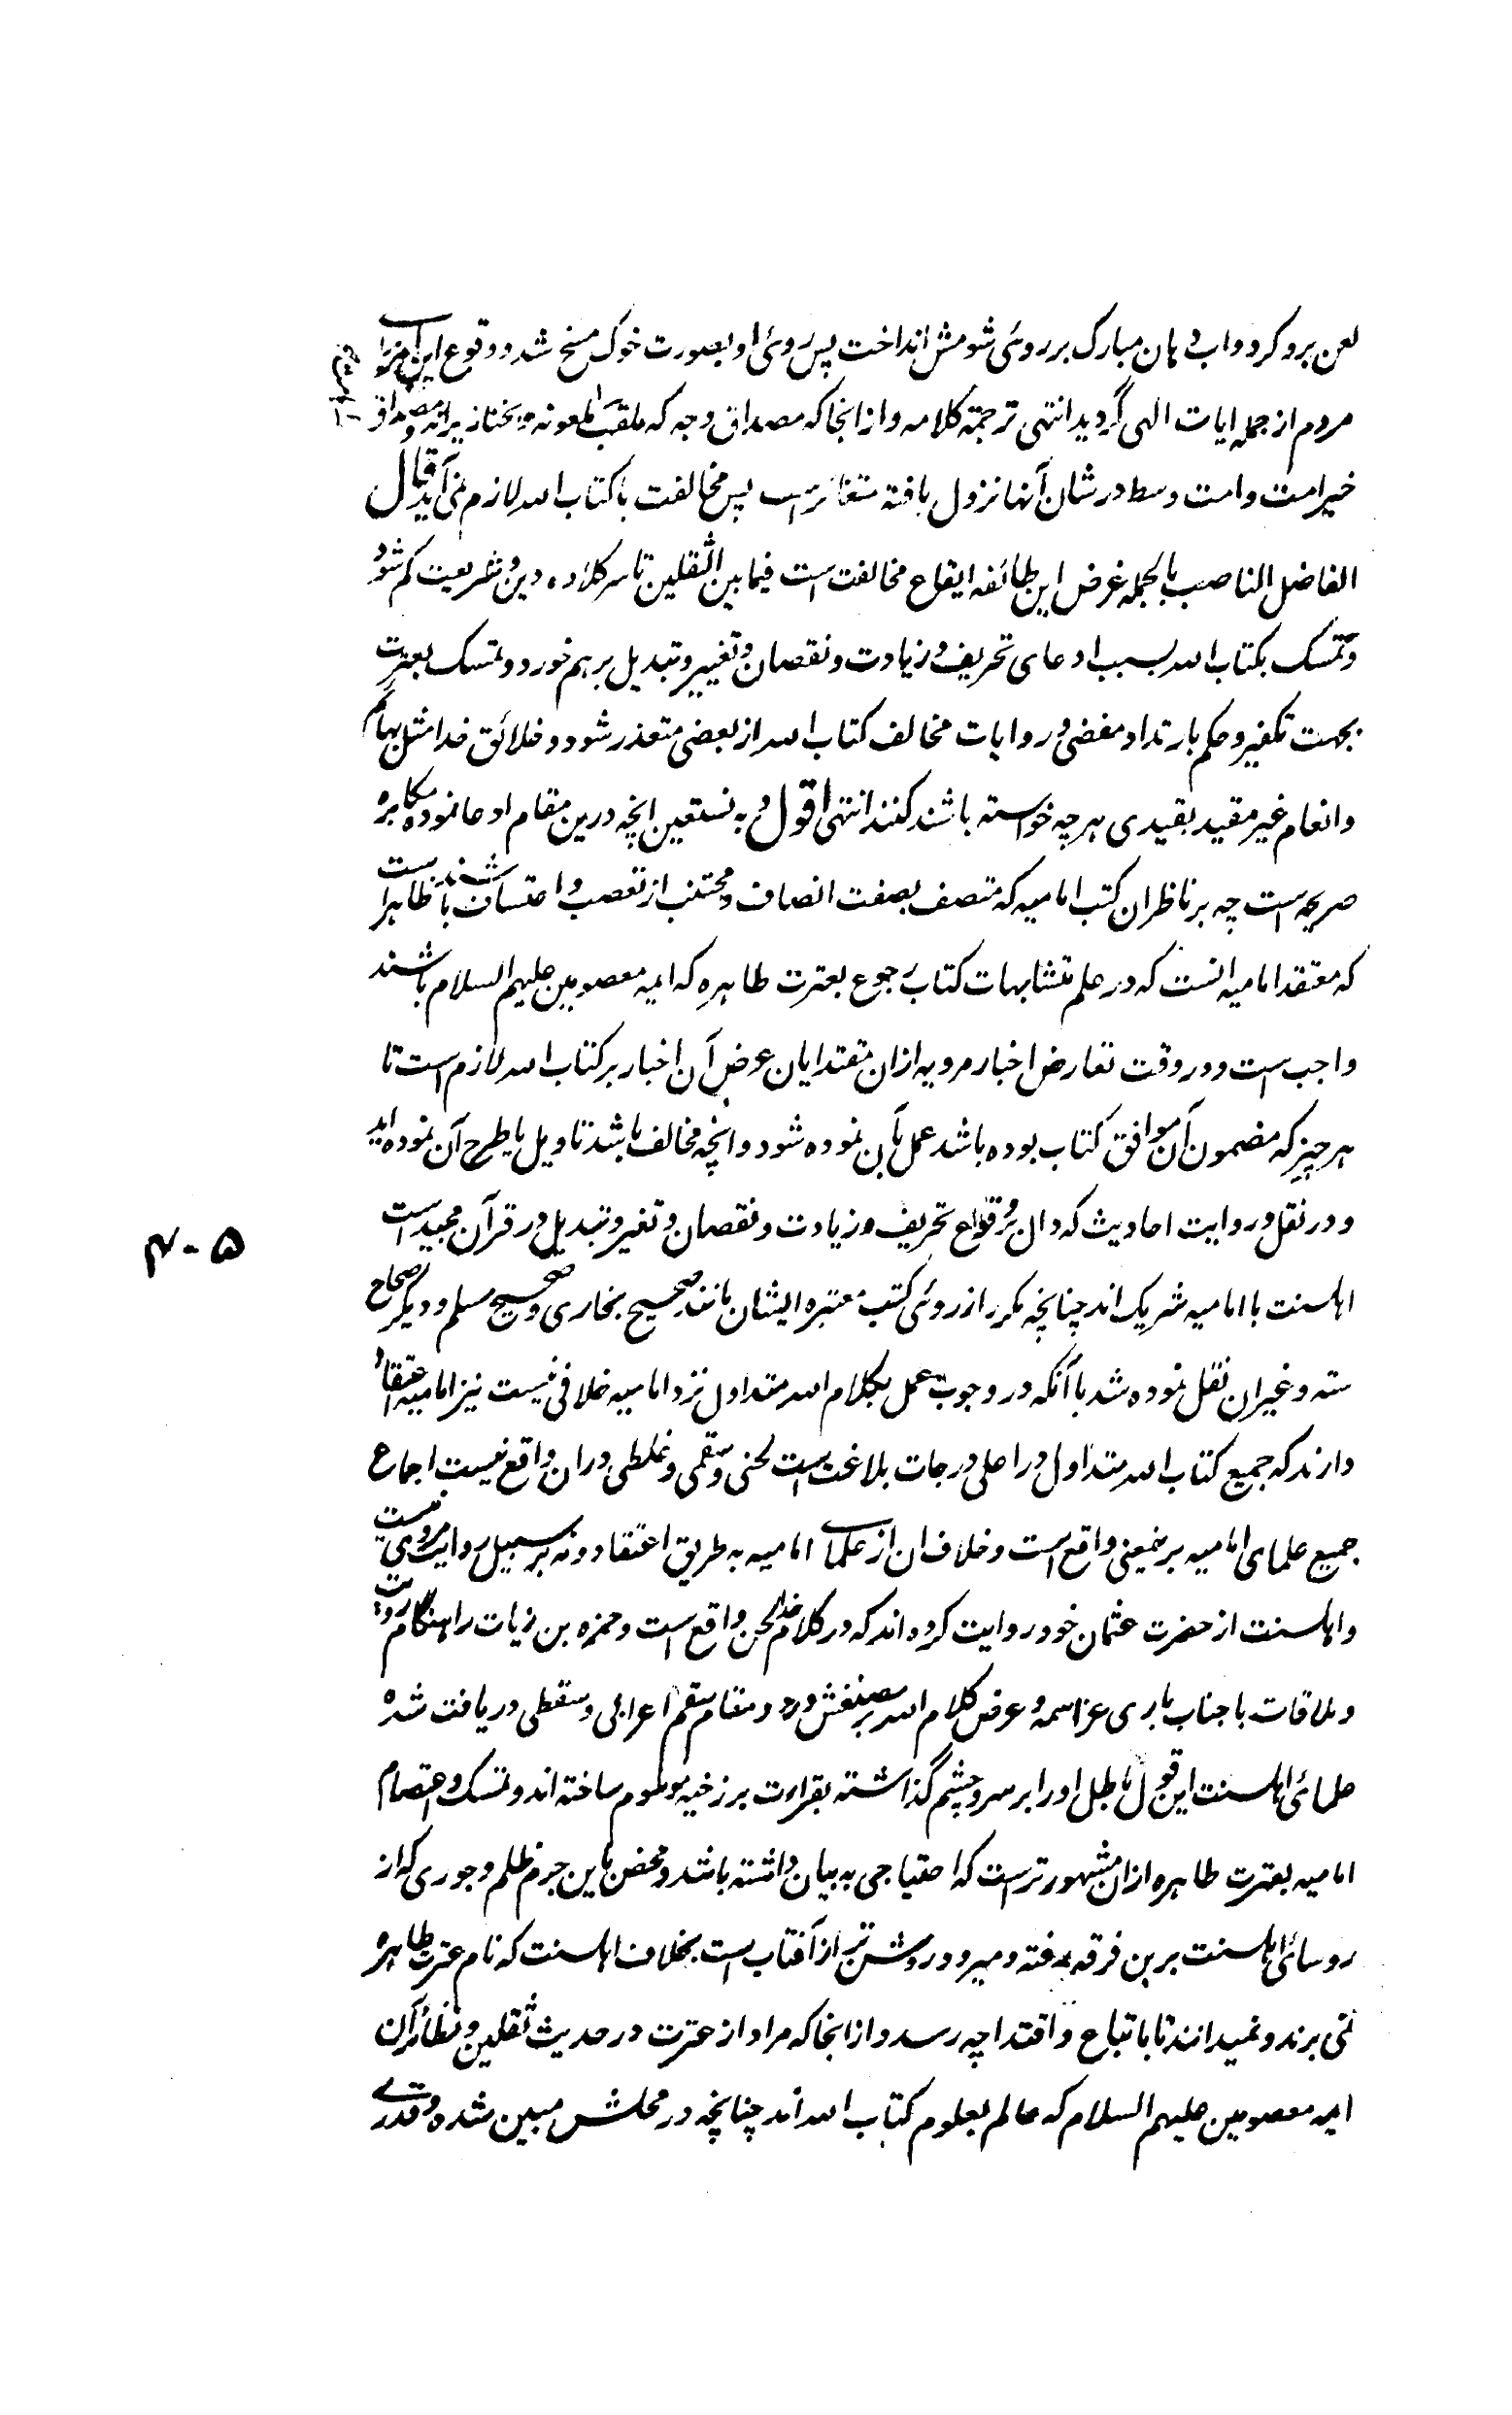 لعن برو کرد و اب دهان مبارک بر روئی شومش انداخت پس روئی او بصورت خوک مسخ شد و وقوع این امر
مردم از جمله ایات الهی گردید انتهی ترجمة کلامه و از انجا که مصداق وجه که ملقب بملعونه و بخنازیر اند و مصداق
خیر امت و امت وسط در شان آنها نزول یافته متغائر است پس مخالفت با کتاب الله لازم نمی آید قال
الفاضل الناصب بالجمله غرض این طائفه ایقاع مخالفت است فیما بین الثقلین تا سر کلاوه دین و شریعت کم شود
و تمسک بکتاب الله بسبب ادعای تحریف و زیادت و نقصان و تغییر و تبدیل برهم خورد و تمسک بعترت
بجهت تکفیر و حکم بارتداد مفضی و روایات مخالف کتاب الله از بعضی متعذر شود و خلائق خدا مثل بهائم
و انعام غیر مقید بقیدی هر چه خواسته باشند کنند انتهی اقول و به نستعین انچه درین مقام ادعا نموده مکابره
صریحه است چه بر ناظران کتب امامیه که متصف بصفت انصاف و مجتنب از تعصب و اعتساف باشند ظاهر است
که معتقد امامیه انست که در علم متشابهات کتاب رجوع بعترت طاهره که ایمه معصومین علیهم السلام باشند
واجب است و در وقت تعارض اخبار مرویه ازان مقتدایان عرض آن اخبار بر کتاب الله لازم است تا
هر چیز که مضمون آن موافق کتاب بوده باشد عمل بآن نموده شود و انچه مخالف باشد تاویل یا طرح آن نموده اید
و در نقل و روایت احادیث که دال بر وقوع تحریف و زیادت و نقصان و تغیر و تبدیل در قرآن مجید است
اهلسنت با امامیه شریک اند چنانچه مکرر از روئی کتب معتبره ایشان مانند صحیح بخاری و صحیح مسلم و دیگر صحاح
سته و غیران نقل نموده شد با آنکه در وجوب عمل بکلام الله متداول نزد امامیه خلافی نیست نیز امامیه اعتقاد
دارند که جمیع کتاب الله متداول در اعلی درجات بلاغت است لحنی و سقمی و غلطی دران واقع نیست اجماع
جمیع علمای امامیه برینمعنی واقع است و خلاف ان از علمای امامیه به طریق اعتقاد و نه بر سبیل روایت مروی نیست
و اهلسنت از حضرت عثمان خود روایت کرده اند که در کلام خدا لحن واقع است و حمزه بن زیات را هنگام رویت
و ملاقات با جناب باری عز اسمه و عرض کلام الله در دو مقام سقم اعرابی و سقطی دریافت شده
علمائی اهلسنت این قول باطل او را بر سر و چشم گذاشته بقراءت برزخیه موسوم ساخته اند و تمسک و اعتصام
امامیه بعترت طاهره ازان مشهورتر است که احتیاجی به بیان داشته باشد و محض باین جرم ظلم و جوری که از
روسائی اهلسنت برین فرقه رفته و میرود روشن تر از آفتاب است بخلاف اهلسنت که نام عترت طاهره
نمی برند و نمیدانند تا باتباع و اقتدا چه رسد و از انجا که مراد از عترت در حدیث ثقلین و نظائر آن
ایمه معصومین علیهم السلام که عالم بعلوم کتاب الله اند چنانچه در محلش مبین شده و قدری
۴۰۵